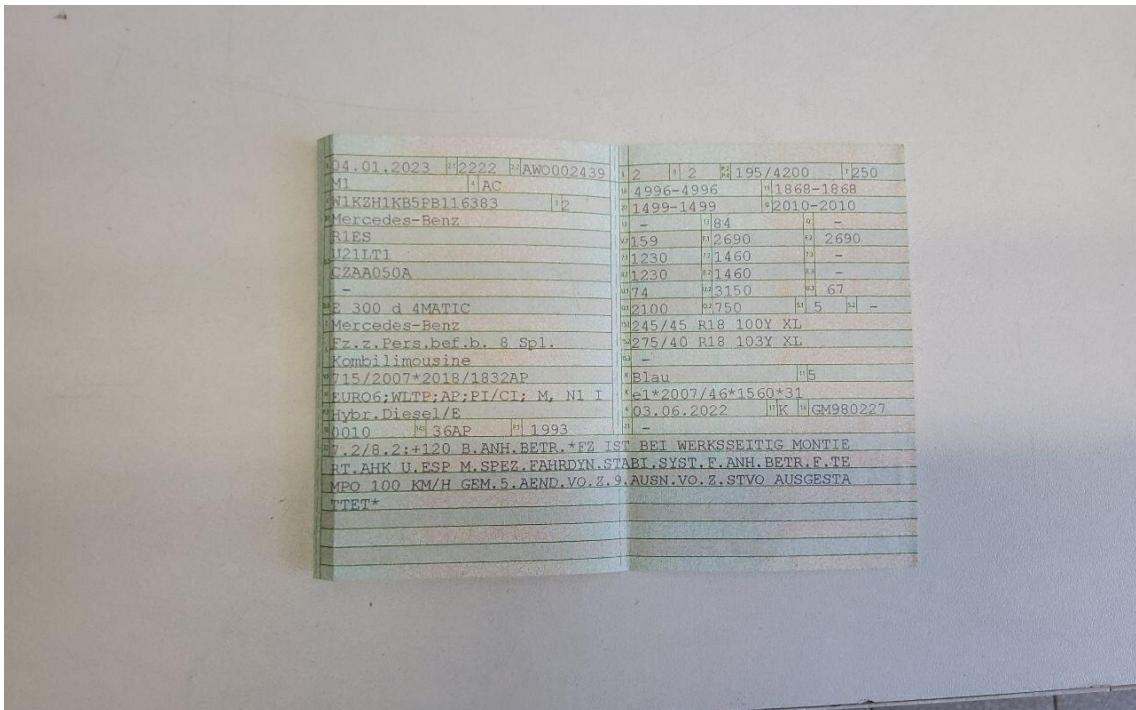 04.01.2023 2222 AWO002439
M1 AC
W1KZH1KB5PB116383 2
Mercedes-Benz
R1ES
U21LT1
CZAA050A
-
E 300 d 4MATIC
Mercedes-Benz
Fz.z.Pers.bef.b. 8 Spl.
Kombilimousine
715/2007*2018/1832AP
EURO6;WLTP;AP;PI/CI; M, N1 I
Hybr.Diesel/E
0010 36AP 1993
2 2 195/4200 250
4996-4996 1868-1868
1499-1499 2010-2010
- 84 -
159 2690 2690
1230 1460 -
1230 1460 -
74 3150 67
2100 750 5 -
245/45 R18 100Y XL
275/40 R18 103Y XL
-
Blau 5
e1*2007/46*1560*31
03.06.2022 K GM980227
-
7.2/8.2:+120 B.ANH.BETR.*FZ IST BEI WERKSSEITIG MONTIE
RT.AHK U.ESP M.SPEZ.FAHRDYN.STABI.SYST.F.ANH.BETR.F.TE
MPO 100 KM/H GEM.5.AEND.VO.Z.9.AUSN.VO.Z.STVO AUSGESTA
TTET*